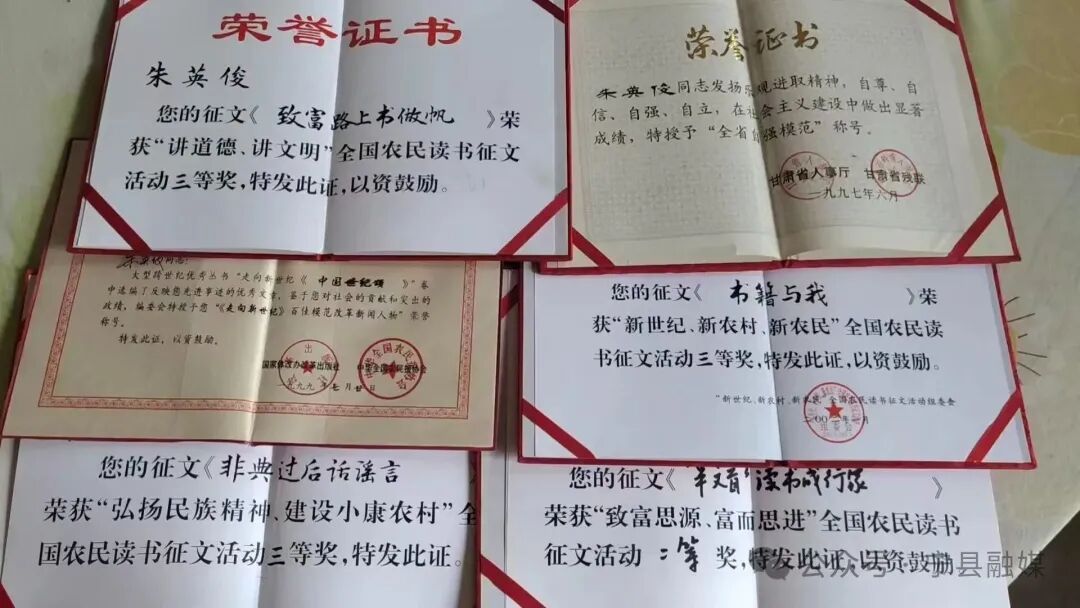 荣誉证书
朱英俊
您的征文《致富路上书做帆》荣
获“讲道德、讲文明”全国农民读书征文
活动三等奖，特发此证，以资鼓励。
荣誉证书
朱英俊同志发扬乐观进取精神，自尊、自
信、自强、自立，在社会主义建设中做出显著
成绩，特授予“全省自强模范”称号。
甘肃省人事厅 甘肃省残联
一九九七年六月
朱英俊同志：
大型跨世纪优秀丛书“走向新世纪《中国世纪颂》”卷
中选编了反映您先进事迹的优秀文章，鉴于您对社会的贡献和突出的
政绩，编委会特授予您“《走向新世纪》百佳模范改革新闻人物”荣誉
称号。
特发此证，以资鼓励。
您的征文《书籍与我》荣
获“新世纪、新农村、新农民”全国农民读
书征文活动三等奖，特发此证，以资鼓励。
“新世纪、新农村、新农民”全国农民读书征文活动组委会
您的征文《非典过后话谣言
荣获“弘扬民族精神、建设小康农村”全
国农民读书征文活动三等奖，特发此证。
您的征文《半文盲读书成行家》
荣获“致富思源、富而思进”全国农民读书
征文活动二等奖，特发此证，以资鼓励
公众号·宁县融媒